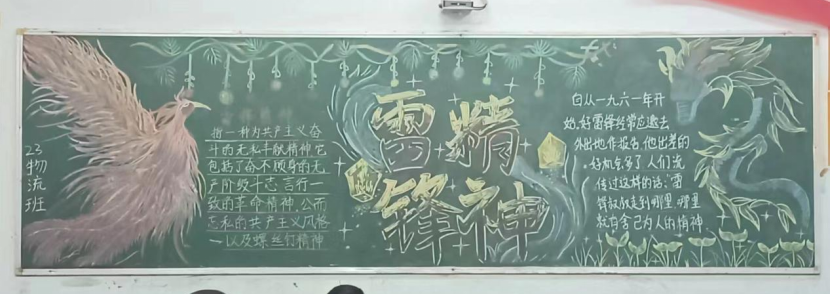 23
物
流
班
指一种为共产主义奋
斗的无私奉献精神它
包括了奋不顾身的无
产阶级斗志言行一
致的革命精神公而
忘私的共产主义风格
以及螺丝钉精神
雷精
锋神
自从一九六一年开
始,好雷锋经常应邀去
外出地作报告他出差的
机会多了人们流
传过这样的话:雷
锋叔叔走到哪里哪里
就有舍己为人的精神